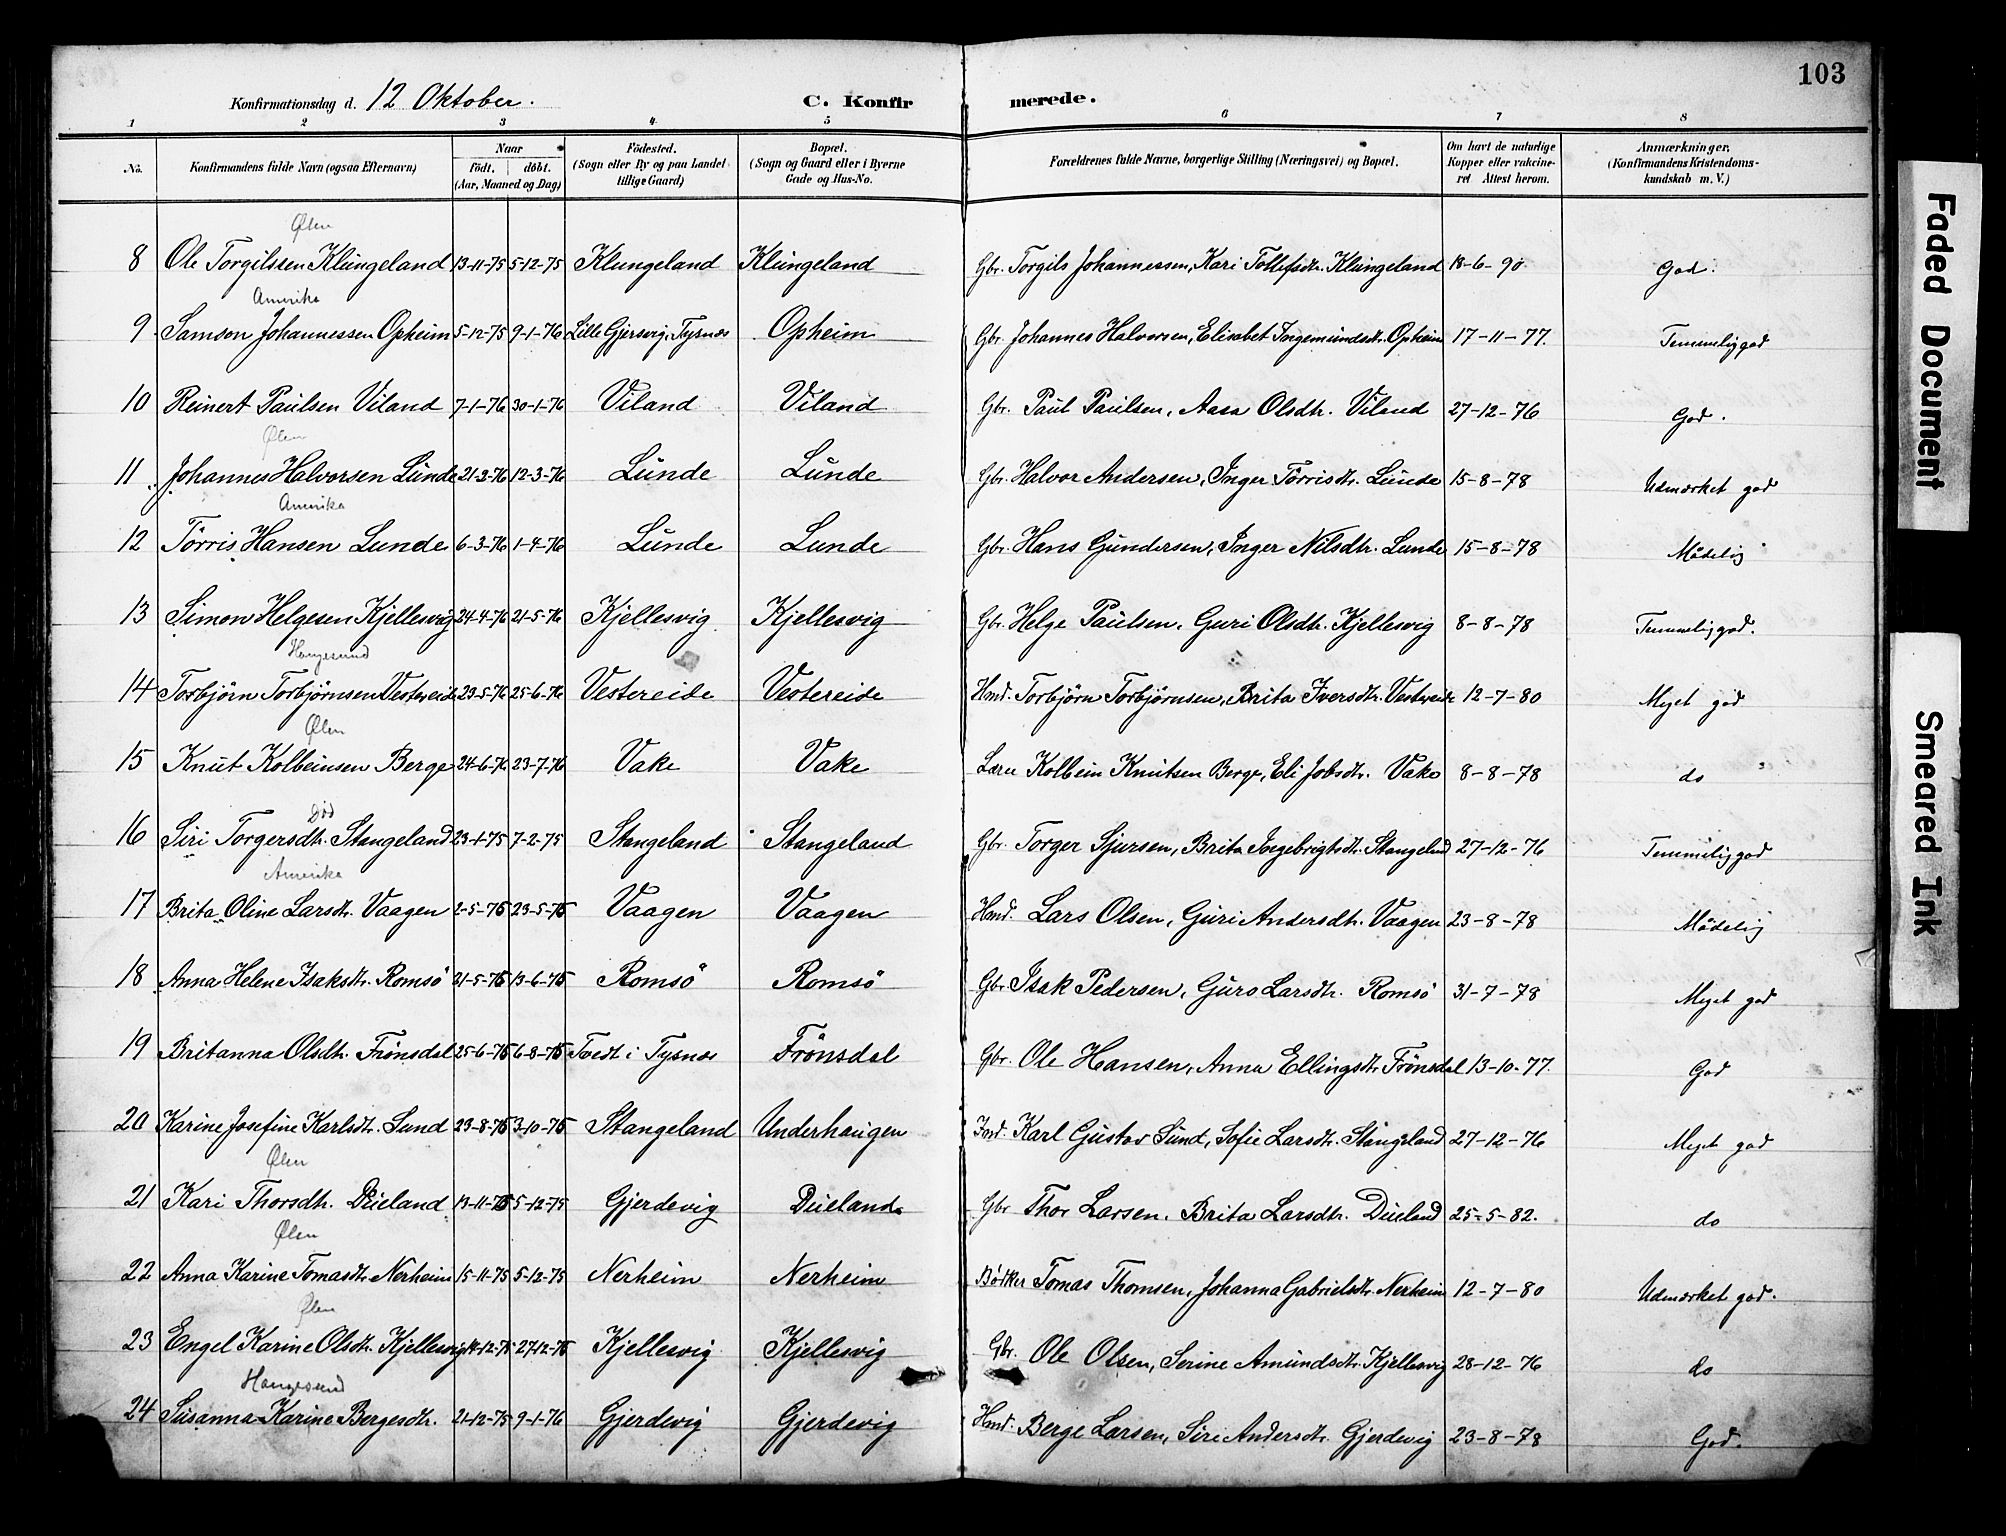 103
Konfirmationsdag d. 12 Oktober.
C. Konfir merede.
1 2 3 4 5 6 7 8
No. Konfirmandens fulde Navn (ogsaa Efternavn) Naar födt. döbt. (Aar, Maaned og Dag) Födested. (Sogn eller By og paa Landet tillige Gaard) Bopæl. (Sogn og Gaard eller i Byerne Gade og Hus-No. Forældrenes fulde Navne, borgerlige Stilling (Næringsvei) og Bopæl. Om havt de naturlige Kopper eller vakcineret Attest herom. Anmærkninger. (Konfirmandens Kristendomskundskab m. V.)
Ølen
8 Ole Torgilssen Klungeland 13-11-75 5-12-75 Klungeland Klungeland Gbr. Torgils Johannessen, Kari Tollefsdtr. Klungeland 18-6-90. God.
Amerika
9 Samson Johannessen Opheim 5-12-75 9-1-76 Lille Gjersvig, Tysnæs Opheim Gbr. Johannes Halvorsen, Elisabet Ingemundsdtr. Opheim 17-11-77. Temmelig god
10 Reinert Paulsen Viland 7-1-76 30-1-76 Viland Viland Gbr. Paul Paulsen, Aasa Olsdtr. Viland 27-12-76 God.
Ølen
11 Johannes Halvorsen Lunde 21-2-76 12-3-76 Lunde Lunde Gbr. Halvor Andersen, Inger Törrisdtr. Lunde 15-8-78 Udmærket god
Amerika
12 Törris Hansen Lunde 6-3-76 1-4-76 Lunde Lunde Gbr. Hans Gundersen, Inger Nilsdtr. Lunde 15-8-78 Mådelig
13 Simon Helgesen Kjellesvig 24-4-76 21-5-76 Kjellesvig Kjellesvig Gbr. Helge Paulsen, Guri Olsdtr. Kjellesvig 8-8-78 Temmelig god.
Haugesund
14 Torbjörn Torbjörnsen Vestereide 23-5-76 25-6-76 Vestereide Vestereide Hmd. Torbjörn Torbjörnsen, Brita Iversdtr. Vestereide 12-7-80 Meget god
Ølen
15 Knut Kolbeinsen Berge 24-6-76 23-7-76 Vake Vake Lærer Kolbein Knutsen Berge, Eli Jobsdtr. Vake 8-8-78 do
Død
16 Siri Torgersdtr. Stangeland 23-1-75 7-2-75 Stangeland Stangeland Gbr. Torger Sjursen, Brita Ingebrigtsdtr. Stangeland 27-12-76 Temmelig god
Amerika
17 Brita Oline Larsdtr. Vaagen 2-5-75 23-5-75 Vaagen Vaagen Hmd. Lars Olsen, Guri Andersdtr. Vaagen 23-8-78 Mådelig
18 Anna Helene Isaksdtr. Romsö 21-5-75 13-6-75 Romsö Romsö Gbr. Isak Pedersen, Guro Larsdtr. Romsö 31-7-78 Meget god
19 Britanna Olsdtr. Frönsdal 25-6-75 6-8-75 Tvedt i Tysnæs Frönsdal Gbr. Ole Hansen, Anna Ellingsdtr. Frönsdal 13-10-77. God
20 Karine Josefine Karlsdtr. Sund 23-8-75 3-10-75 Stangeland Underhaugen Ind. Karl Gustav Sund, Sofie Larsdtr. Stangeland 27-12-76 Meget god
Ølen
21 Kari Thorsdtr. Dueland 13-11-75 5-12-75 Gjerdevig Dueland Gbr Thor Larsen, Brita Larsdtr. Dueland 25-5-82. do
Ølen
22 Anna Karine Tomasdtr. Nerheim 15-11-75 5-12-75 Nerheim Nerheim Bödker Tomas Thomsen, Johanna Gabrielsdtr. Nerheim 12-7-80 Udmærket god.
Ølen
23 Engel Karine Olsdtr. Kjellesvig 14-12-75 27-12-75 Kjellesvig Kjellesvig Gbr. Ole Olsen, Serine Amundsdtr. Kjellesvig 28-12-76 do
Haugesund
24 Susanna Karine Bergesdtr. 21-12-75 9-1-76 Gjerdevig Gjerdevig Hmd. Berge Larsen, Siri Andersdtr. Gjerdevig 23-8-78 God.
Faded Document
Smeared Ink